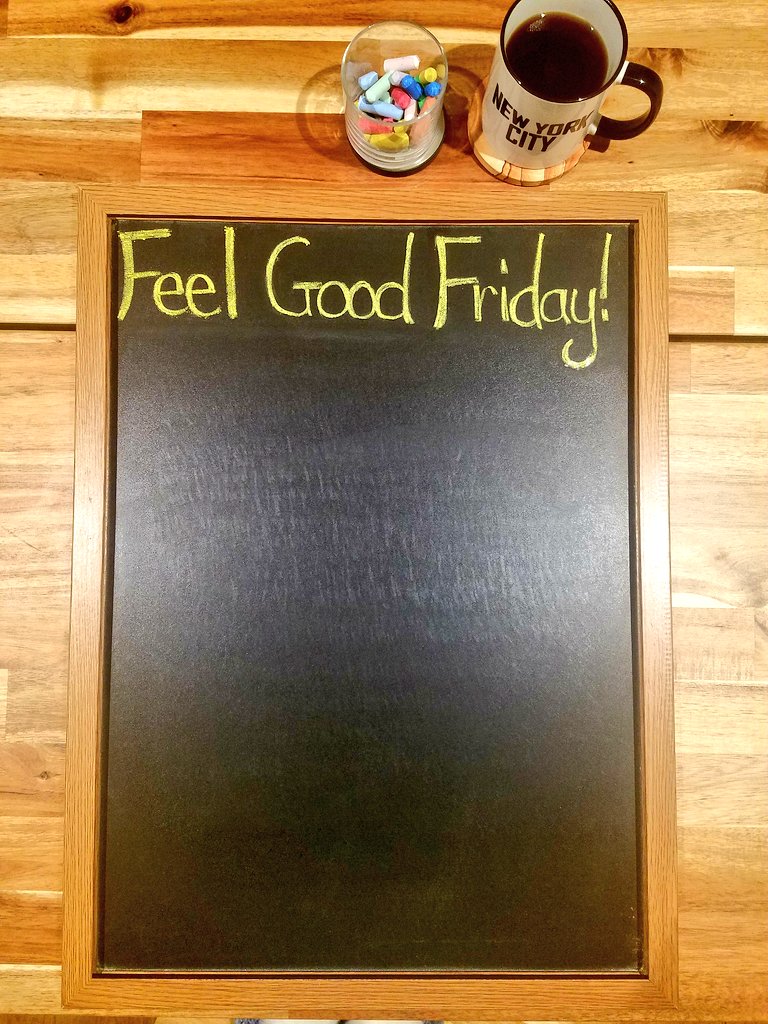 NEW YORK
CITY
Feel Good Friday!